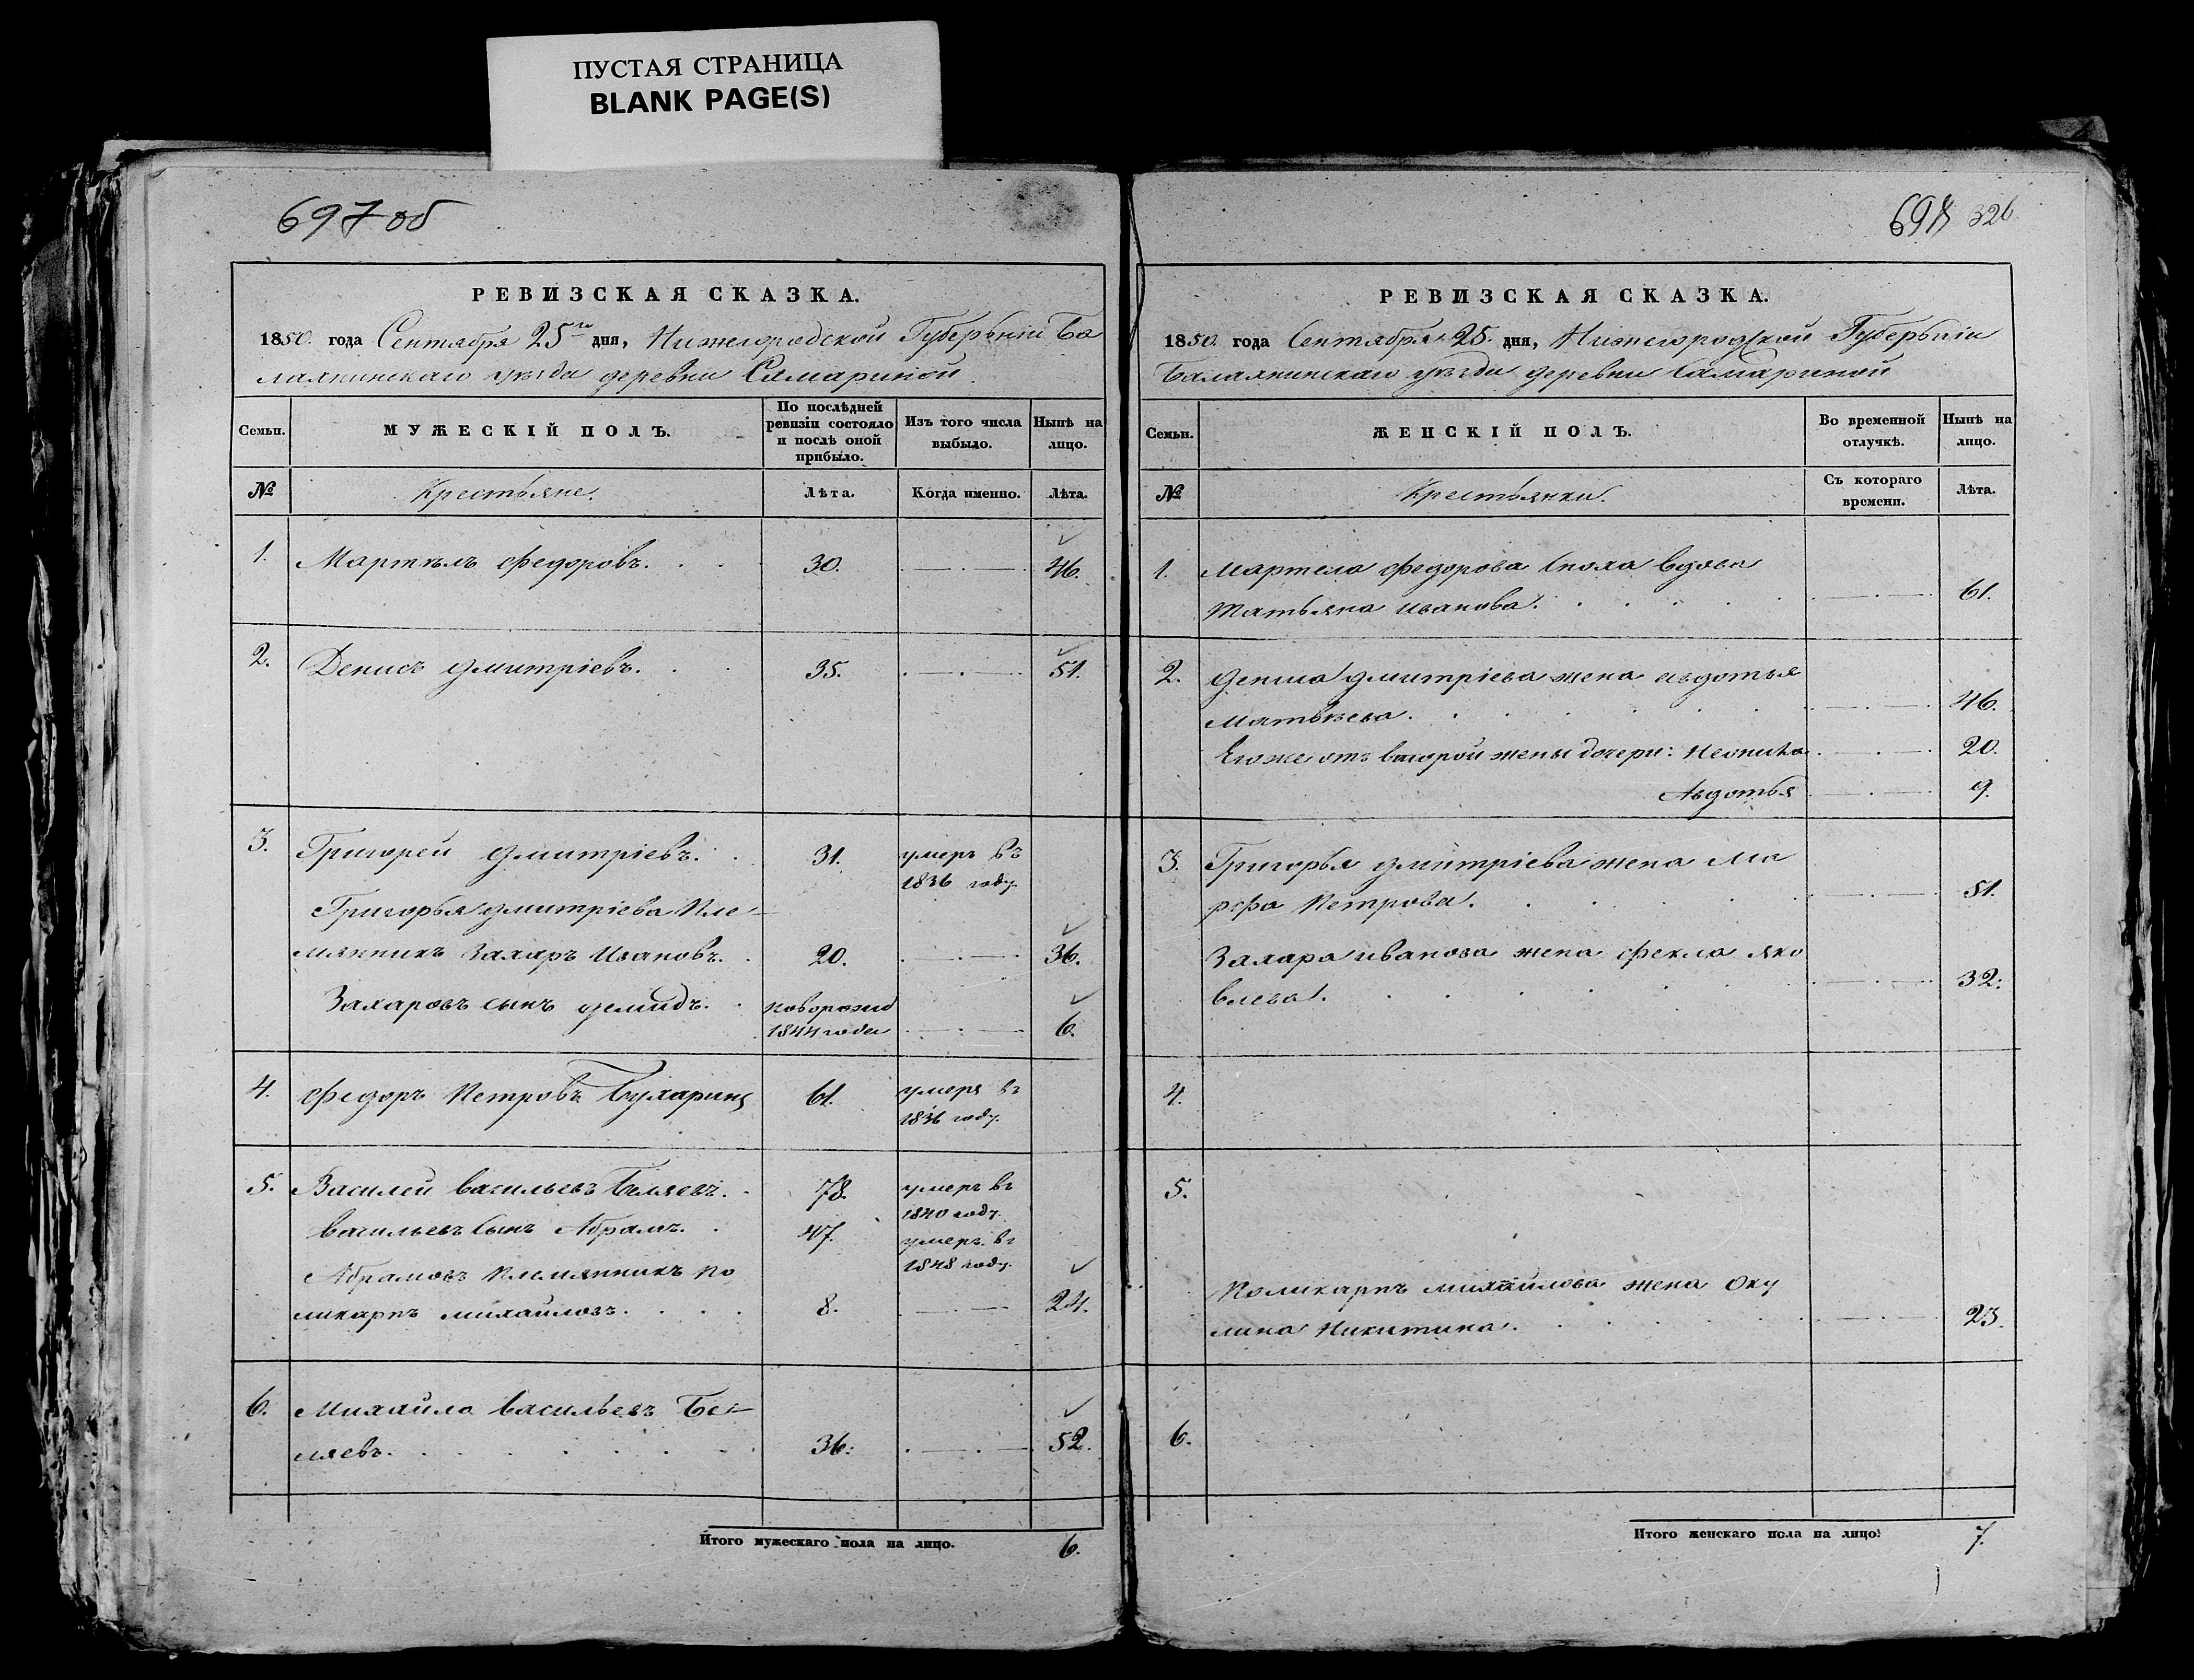 ПУСТАЯ СТРАНИЦА
BLANK PAGE(S)
697 об
РЕВИЗСКАЯ СКАЗКА.
1850. года Сентября 25го дня, Нижегородской Губерьніи Ба
лахнинскаго уезда деревни Самариной.
Семьи. МУЖЕСКІЙ ПОЛЪ. По послѣдней ревизіи состояло и послѣ оной прибыло. Изъ того числа выбыло. Нынѣ на лицо.
№ Крестьяне. Лѣта. Когда именно. Лѣта.
1. Федоровъ. 30. 46.
2. Денисъ Дмитріевъ. 35. 51.
3. Григорей Дмитріевъ. 31. умеръ въ
1836 году.
Григорья Дмитріева Пле-
мянникъ Захаръ Ивановъ. 20. 36.
Захаровъ сынъ Демидъ. новорожд
1844 года 6.
4. Федоръ Петровъ Бухаринъ 61. умеръ въ
1836 году.
5. Василей Васильевъ Беляевъ. 78. умеръ въ
1840 году.
Васильевъ сынъ Абрамъ. 47. умеръ въ
1848 году.
Абрамовъ Племянникъ По
ликарпъ Михайловъ. 8. 24.
6. Михайла Васильевъ Бе-
ляевъ. 36. 52.
Итого мужескаго пола на лицо. 6.
698 326
РЕВИЗСКАЯ СКАЗКА.
1850. года Сентября 25. дня, Нижегородской Губерьніи
Балахнинскаго уезда деревни Самариной
Семьи. ЖЕНСКІЙ ПОЛЪ. Во временной отлучкѣ. Нынѣ на лицо.
№ Крестьянки. Съ котораго времени. Лѣта.
1. Федорова сноха вдова
Татьяна Иванова. 61.
2. Дениса Дмитріева жена Авдотья
Матвеева. 46.
Его же отъ второй жены дочери: Неонила 20.
Авдотья 9.
3. Григорья Дмитріева жена Ма
рфа Петрова. 51.
Захара Иванова жена Фекла Яко
влева. 32.
4.
5.
Поликарпъ Михайлова жена Оку
лина Никитина. 23.
6.
Итого женскаго пола на лицо: 7.